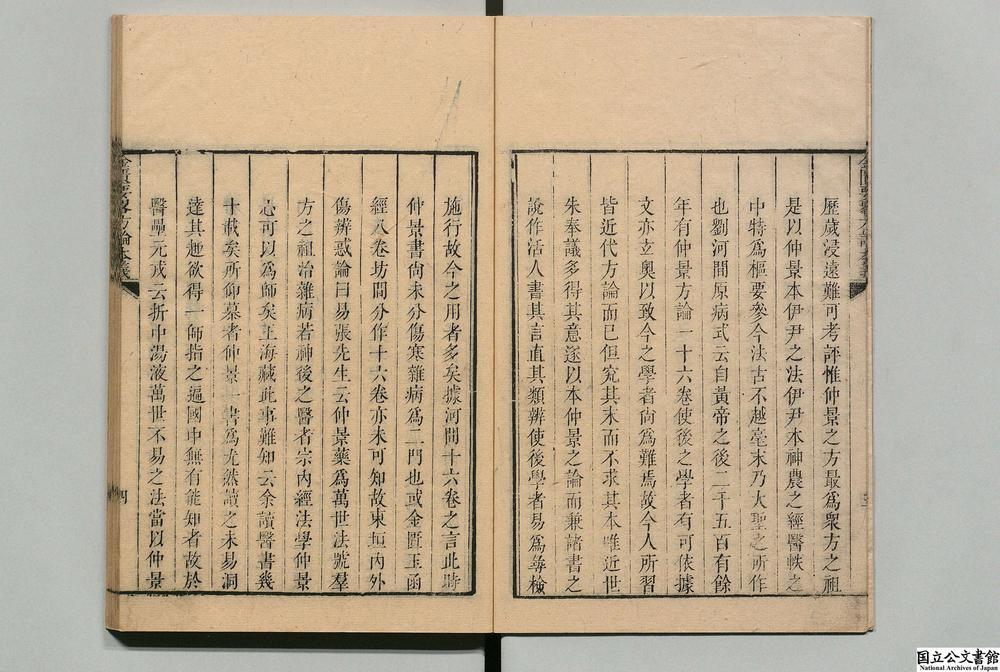 歷歲浸遠難可考評惟仲景之方最爲衆方之祖
是以仲景本伊尹之法伊尹本神農之經醫帙之
中特爲樞要參今法古不越毫末乃大聖之所作
也劉河間原病式云自黃帝之後二千五百有餘
年有仲景方論一十六卷使後之學者有可依據
文亦玄奧以致今之學者尙爲難焉故今人所習
皆近代方論而已但究其末而不求其本唯近世
朱奉議多得其意遂以本仲景之論而兼諸書之
說作活人書其言直其類辨使後學者易爲尋檢
施行故今之用者多矣據河間十六卷之言此時
仲景書尙未分傷寒雜病爲二門也或金匱玉函
經八卷坊間分作十六卷亦未可知故東垣內外
傷辨惑論曰易張先生云仲景藥爲萬世法號羣
方之祖治雜病若神後之醫者宗內經法學仲景
心可以爲師矣王海藏此事難知云余讀醫書幾
十載矣所仰慕者仲景一書爲尤然讀之未易洞
達其趣欲得一師指之遍國中無有能知者故於
醫壘元戎云折中湯液萬世不易之法當以仲景
四
国立公文書館
National Archives of Japan